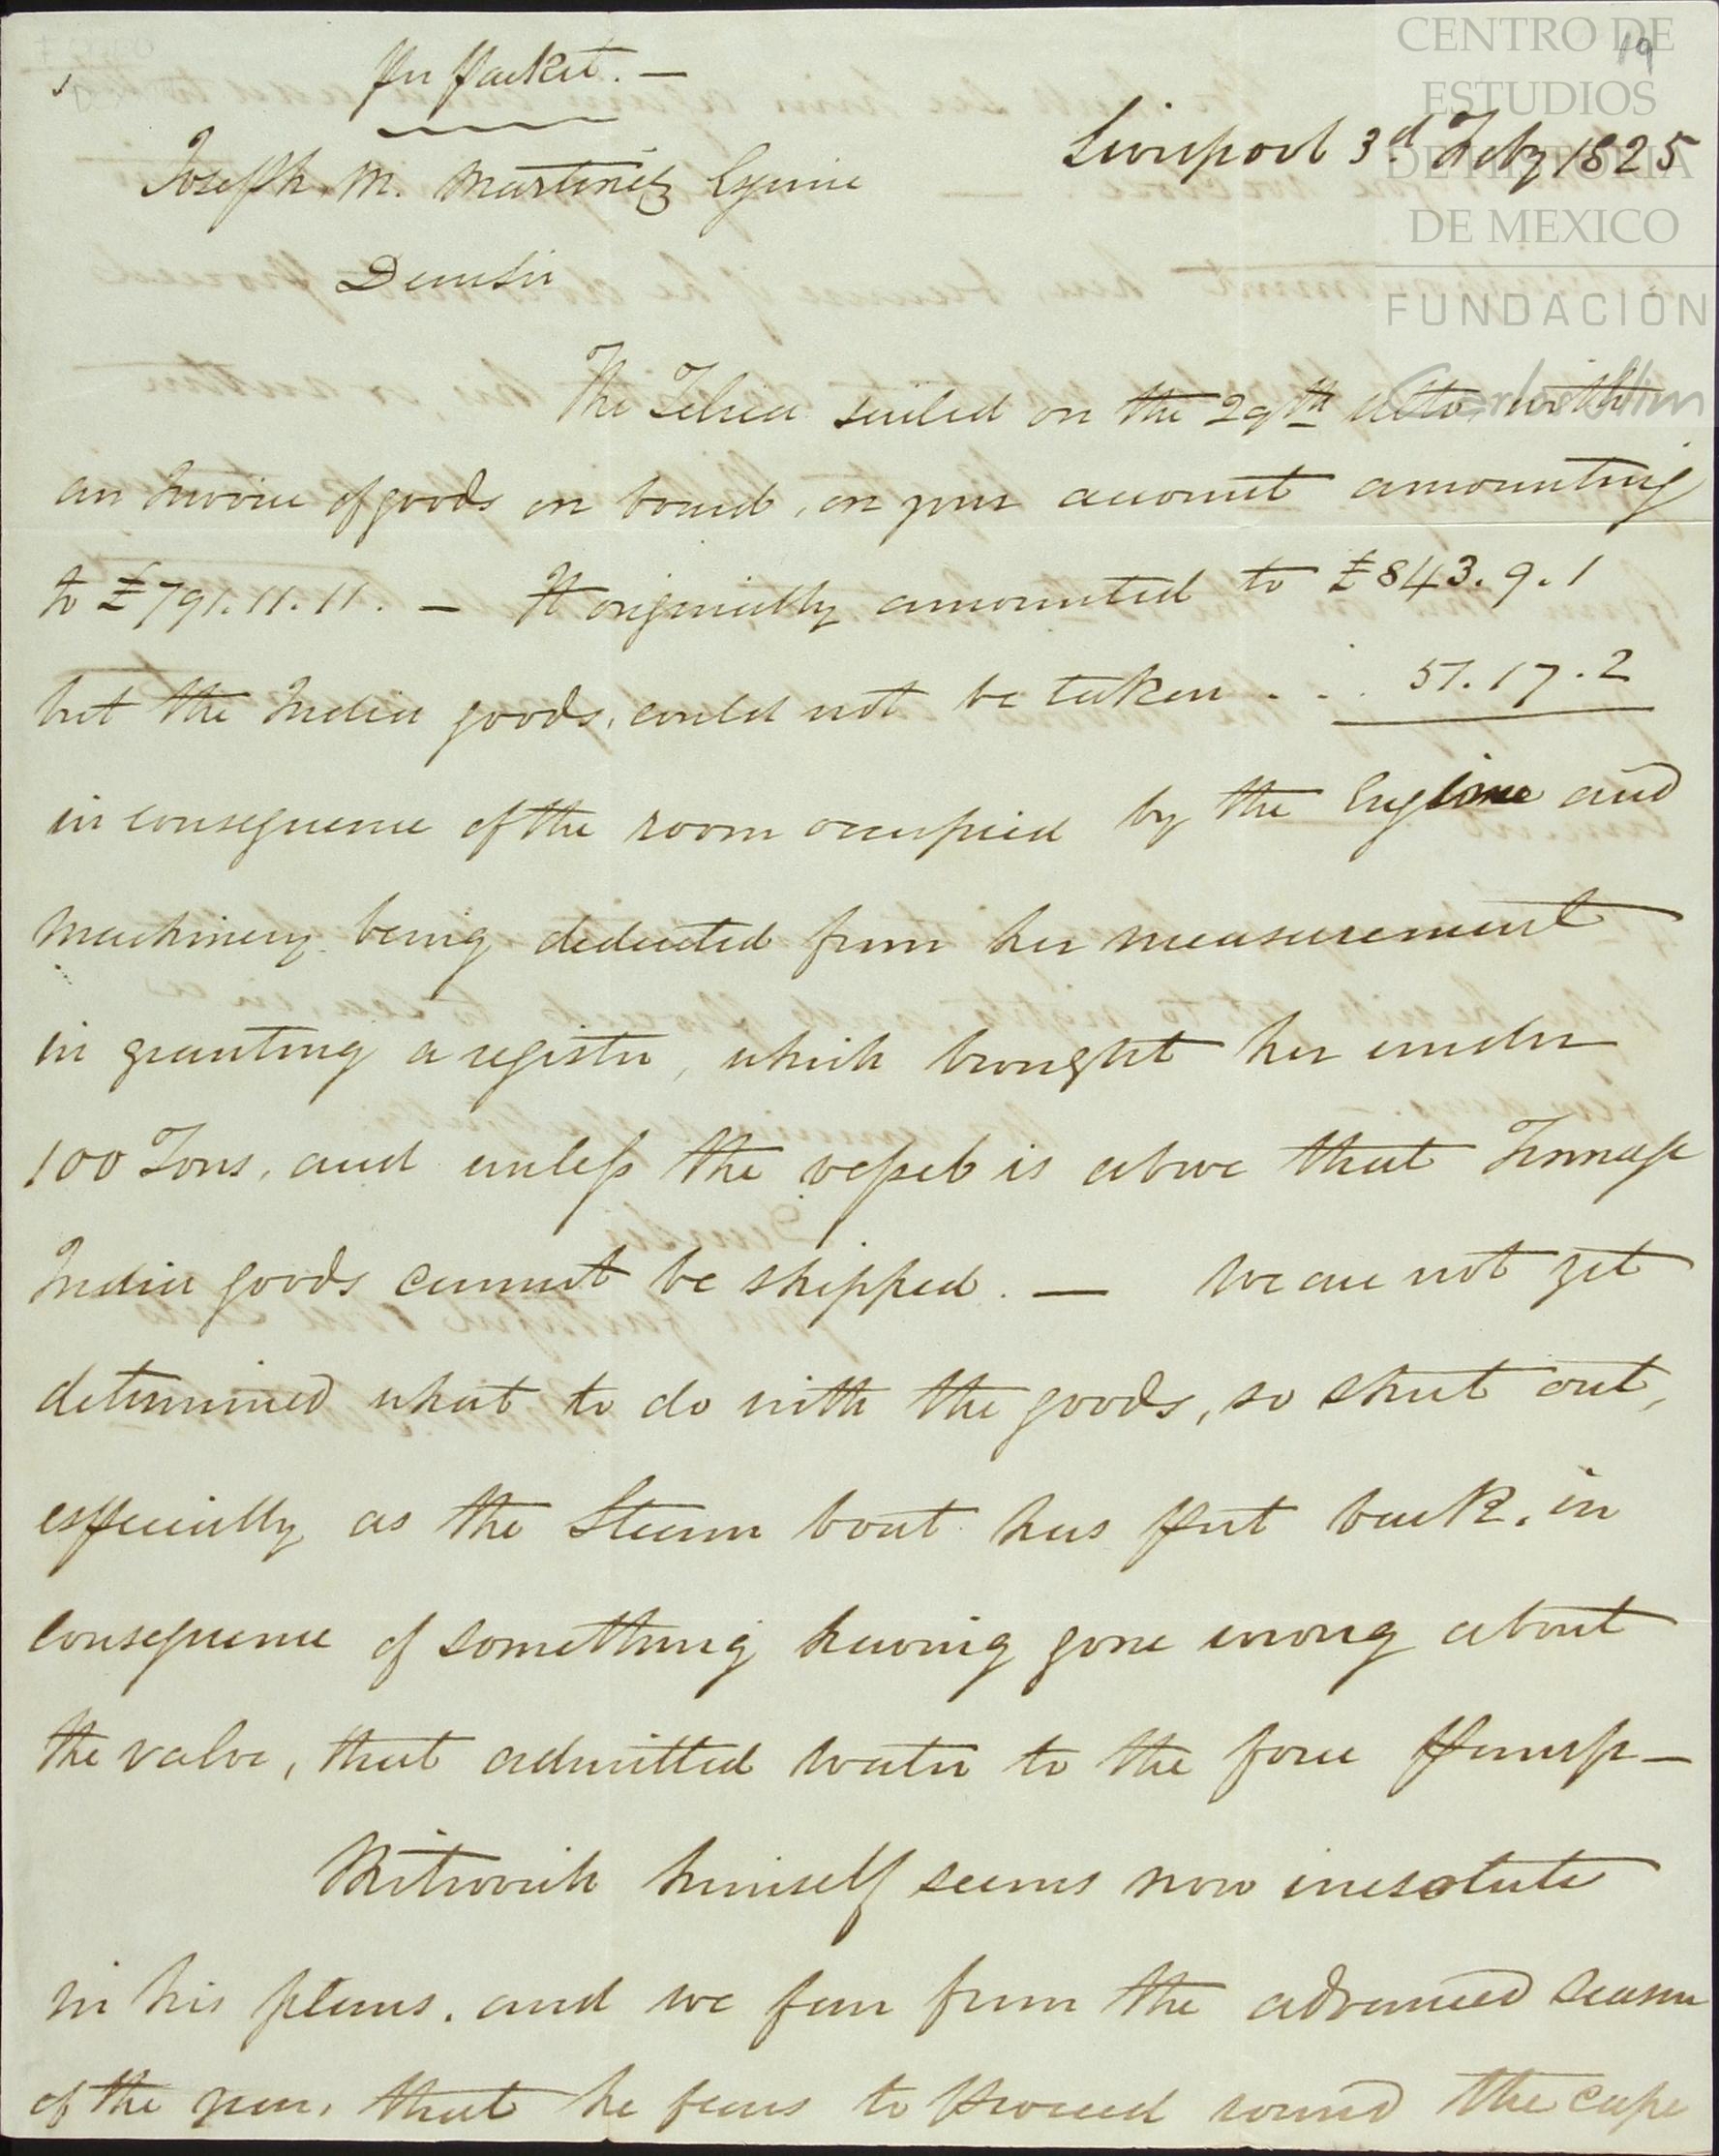 19
Per Packet. —
Liverpool 3.d Feby 1825
Joseph. M. Martinez Esquire
Dear Sir
The Telica sailed on the 29th ulto. with
an Invoice of goods on board, on your account amounting
to £791.11.11. — It originally amounted to £843.9.1
but the India goods, could not be taken . . . 51.17.2
in consequence of the room occupied by the Engine and
machinery being deducted from her measurement
in granting a register, which brought her under
100 Tons, and unless the vessel is above that Tonnage
India goods cannot be shipped. — We are not yet
determined what to do with the goods, so shut out,
especially as the Steam boat has put back, in
consequence of something having gone wrong about
the valve, that admitted water to the force pump —
Mitrovich himself seems now irresolute
in his plans, and we fear from the advanced season
of the year, that he fears to proceed round the cape
CENTRO DE
ESTUDIOS
DE HISTORIA
DE MEXICO
FUNDACIÓN
Carlos Slim